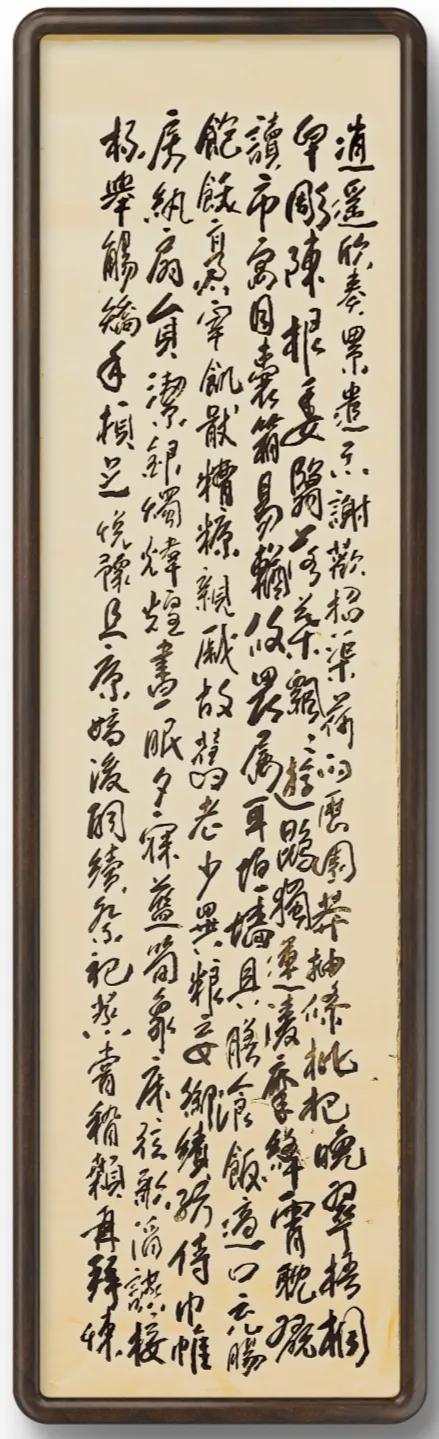 逍遥欣奏累遣慼謝歡招渠荷的歷園莽抽條枇杷晚翠梧桐
早彫陳根委翳落葉飄〻遊鵾獨運凌摩絳霄耽翫
讀市寓目囊箱易輶攸畏屬耳垣墻具膳飡飯適口充腸
飽飫烹宰飢猒糟糠親戚故舊老少異粮妾御績紡侍巾帷
房紈扇員潔銀燭煒煌晝眠夕寐藍笋象床弦歌酒讌接
杯舉觴矯手頓足悅豫且康嫡後嗣續祭祀蒸嘗稽顙再拜悚